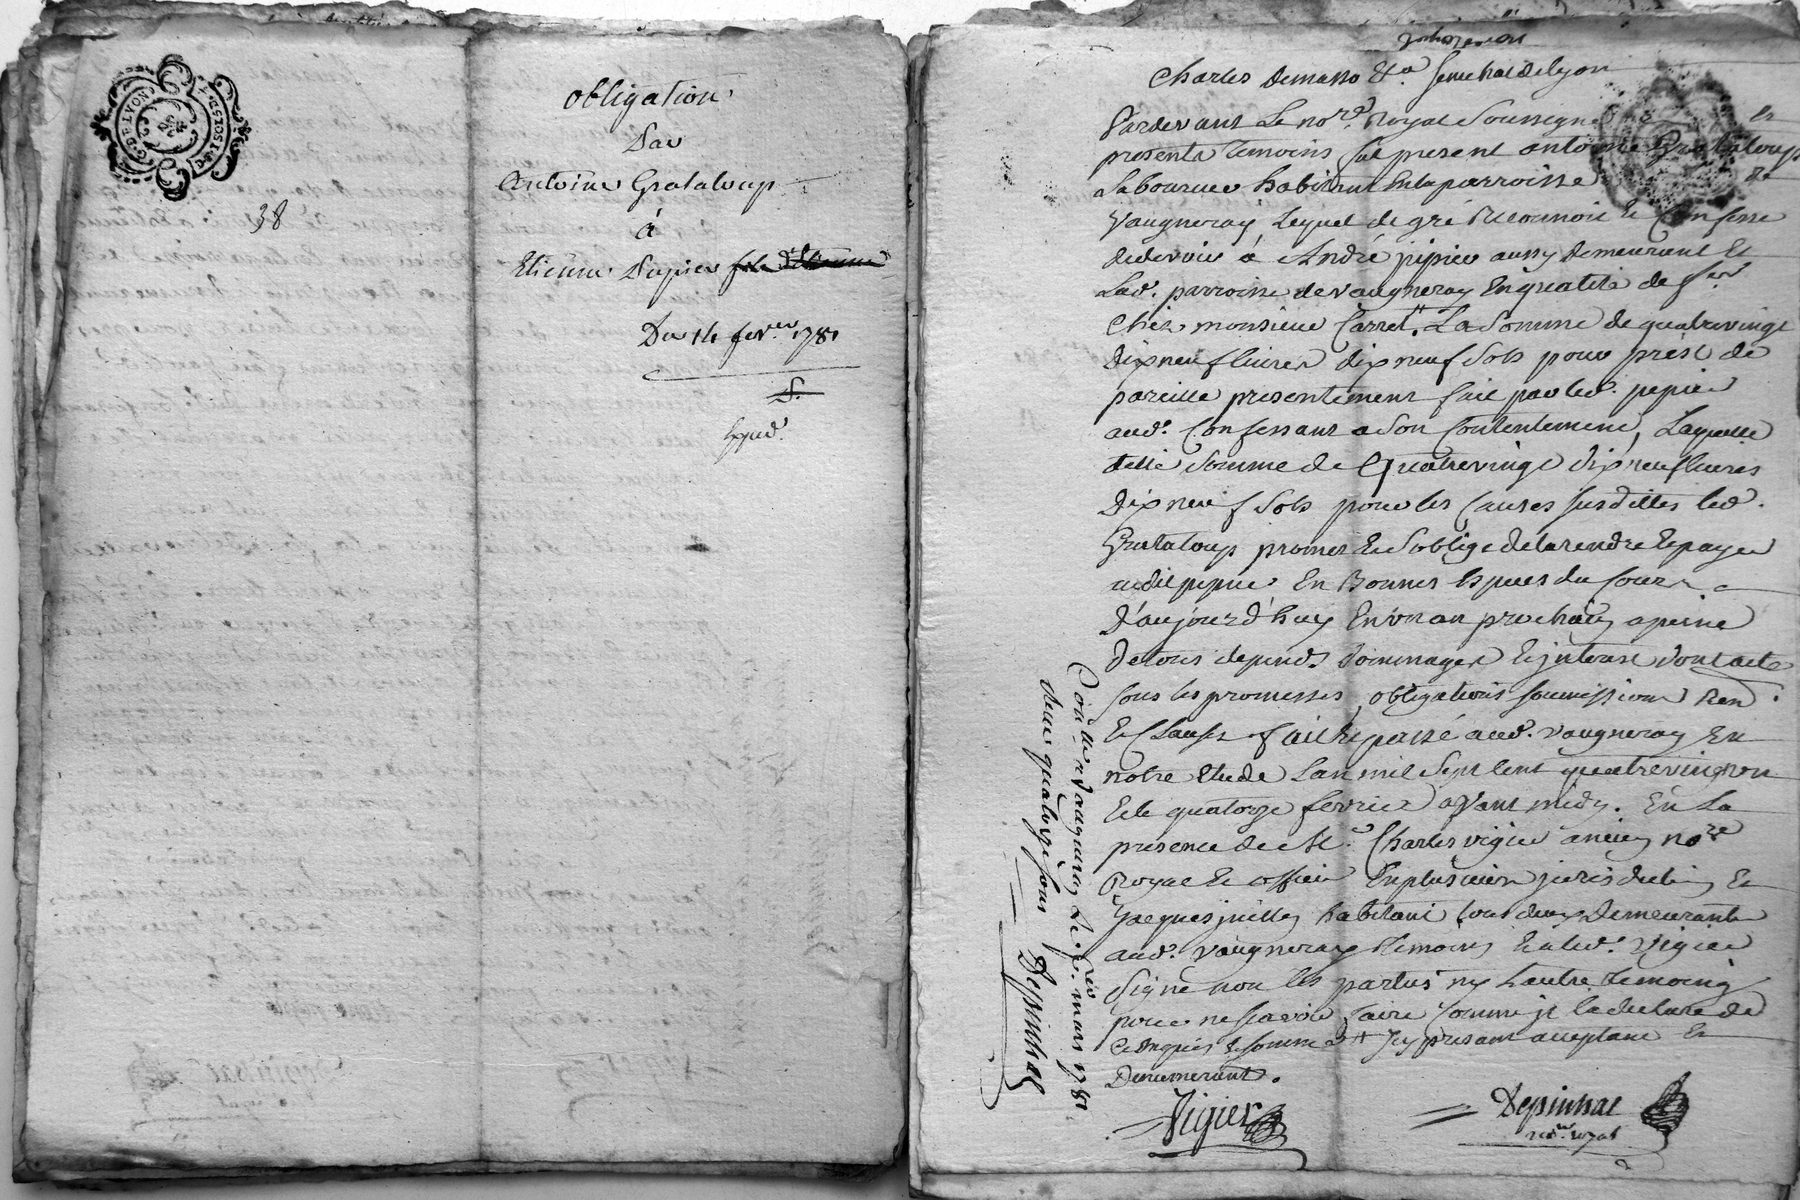 G. DE LYON
38
obligation
Par
Antoine Grataloup
à
Etienne Pupier
Du 14 fevr. 1781
S.
Exped.
Charles Demasso &a Senechal de Lyon
Pardevant Le nore. Royal Soussigné Et
presents temoins fut present antoine Grataloup
Laboureur habitant En la parroisse de
Vaugneray Lequel de gré Reconnoit Et Confesse
de devoir à André pipier aussy demeurant Et
Lad. parroisse de vaugneray En qualité de
Chez monsieur Carret. La Somme de quatrevingt
dix neuf livres dix neuf Sols pour prest de
pareille presentement fait par led. pepier
aud. Confessant a Son Contentement, Laquelle
ditte Somme de Quatrevingt dix neuf livres
dix neuf Sols pour les Causes susdittes led.
Grataloup promet Et S'oblige de la rendre Et payer
audit pepier En Bonnes Especes du Cours
d'aujourd'huy En un an prochain a peine
de tous depends dommages Et interest dont acte
sous les promesses, obligations soumissions Ren.
Et Clauses fait Et passé aud. vaugneray En
notre Etude L'an mil Sept Cent quatrevingt un
Et le quatorze fevrier avant midy. En La
presence de Me. Charles vigier ancien nore
Royal Et officier En plusieurs jurisdictions Et
Jacques juilly habitant tous deux demeurants
aud. vaugneray temoins Et a led. Vigier
Signé non les parties ny L'autre temoing
pour ne sçavoir faire Comme il la declaré de
Ce Enquis Et sommé icy present acceptant Et
Denumerant.
Vigier
Depinhac
nore. royal
Con.lé a Vaugneray Le 1er. mars 1781
Reçu quatorze sous Depinhac